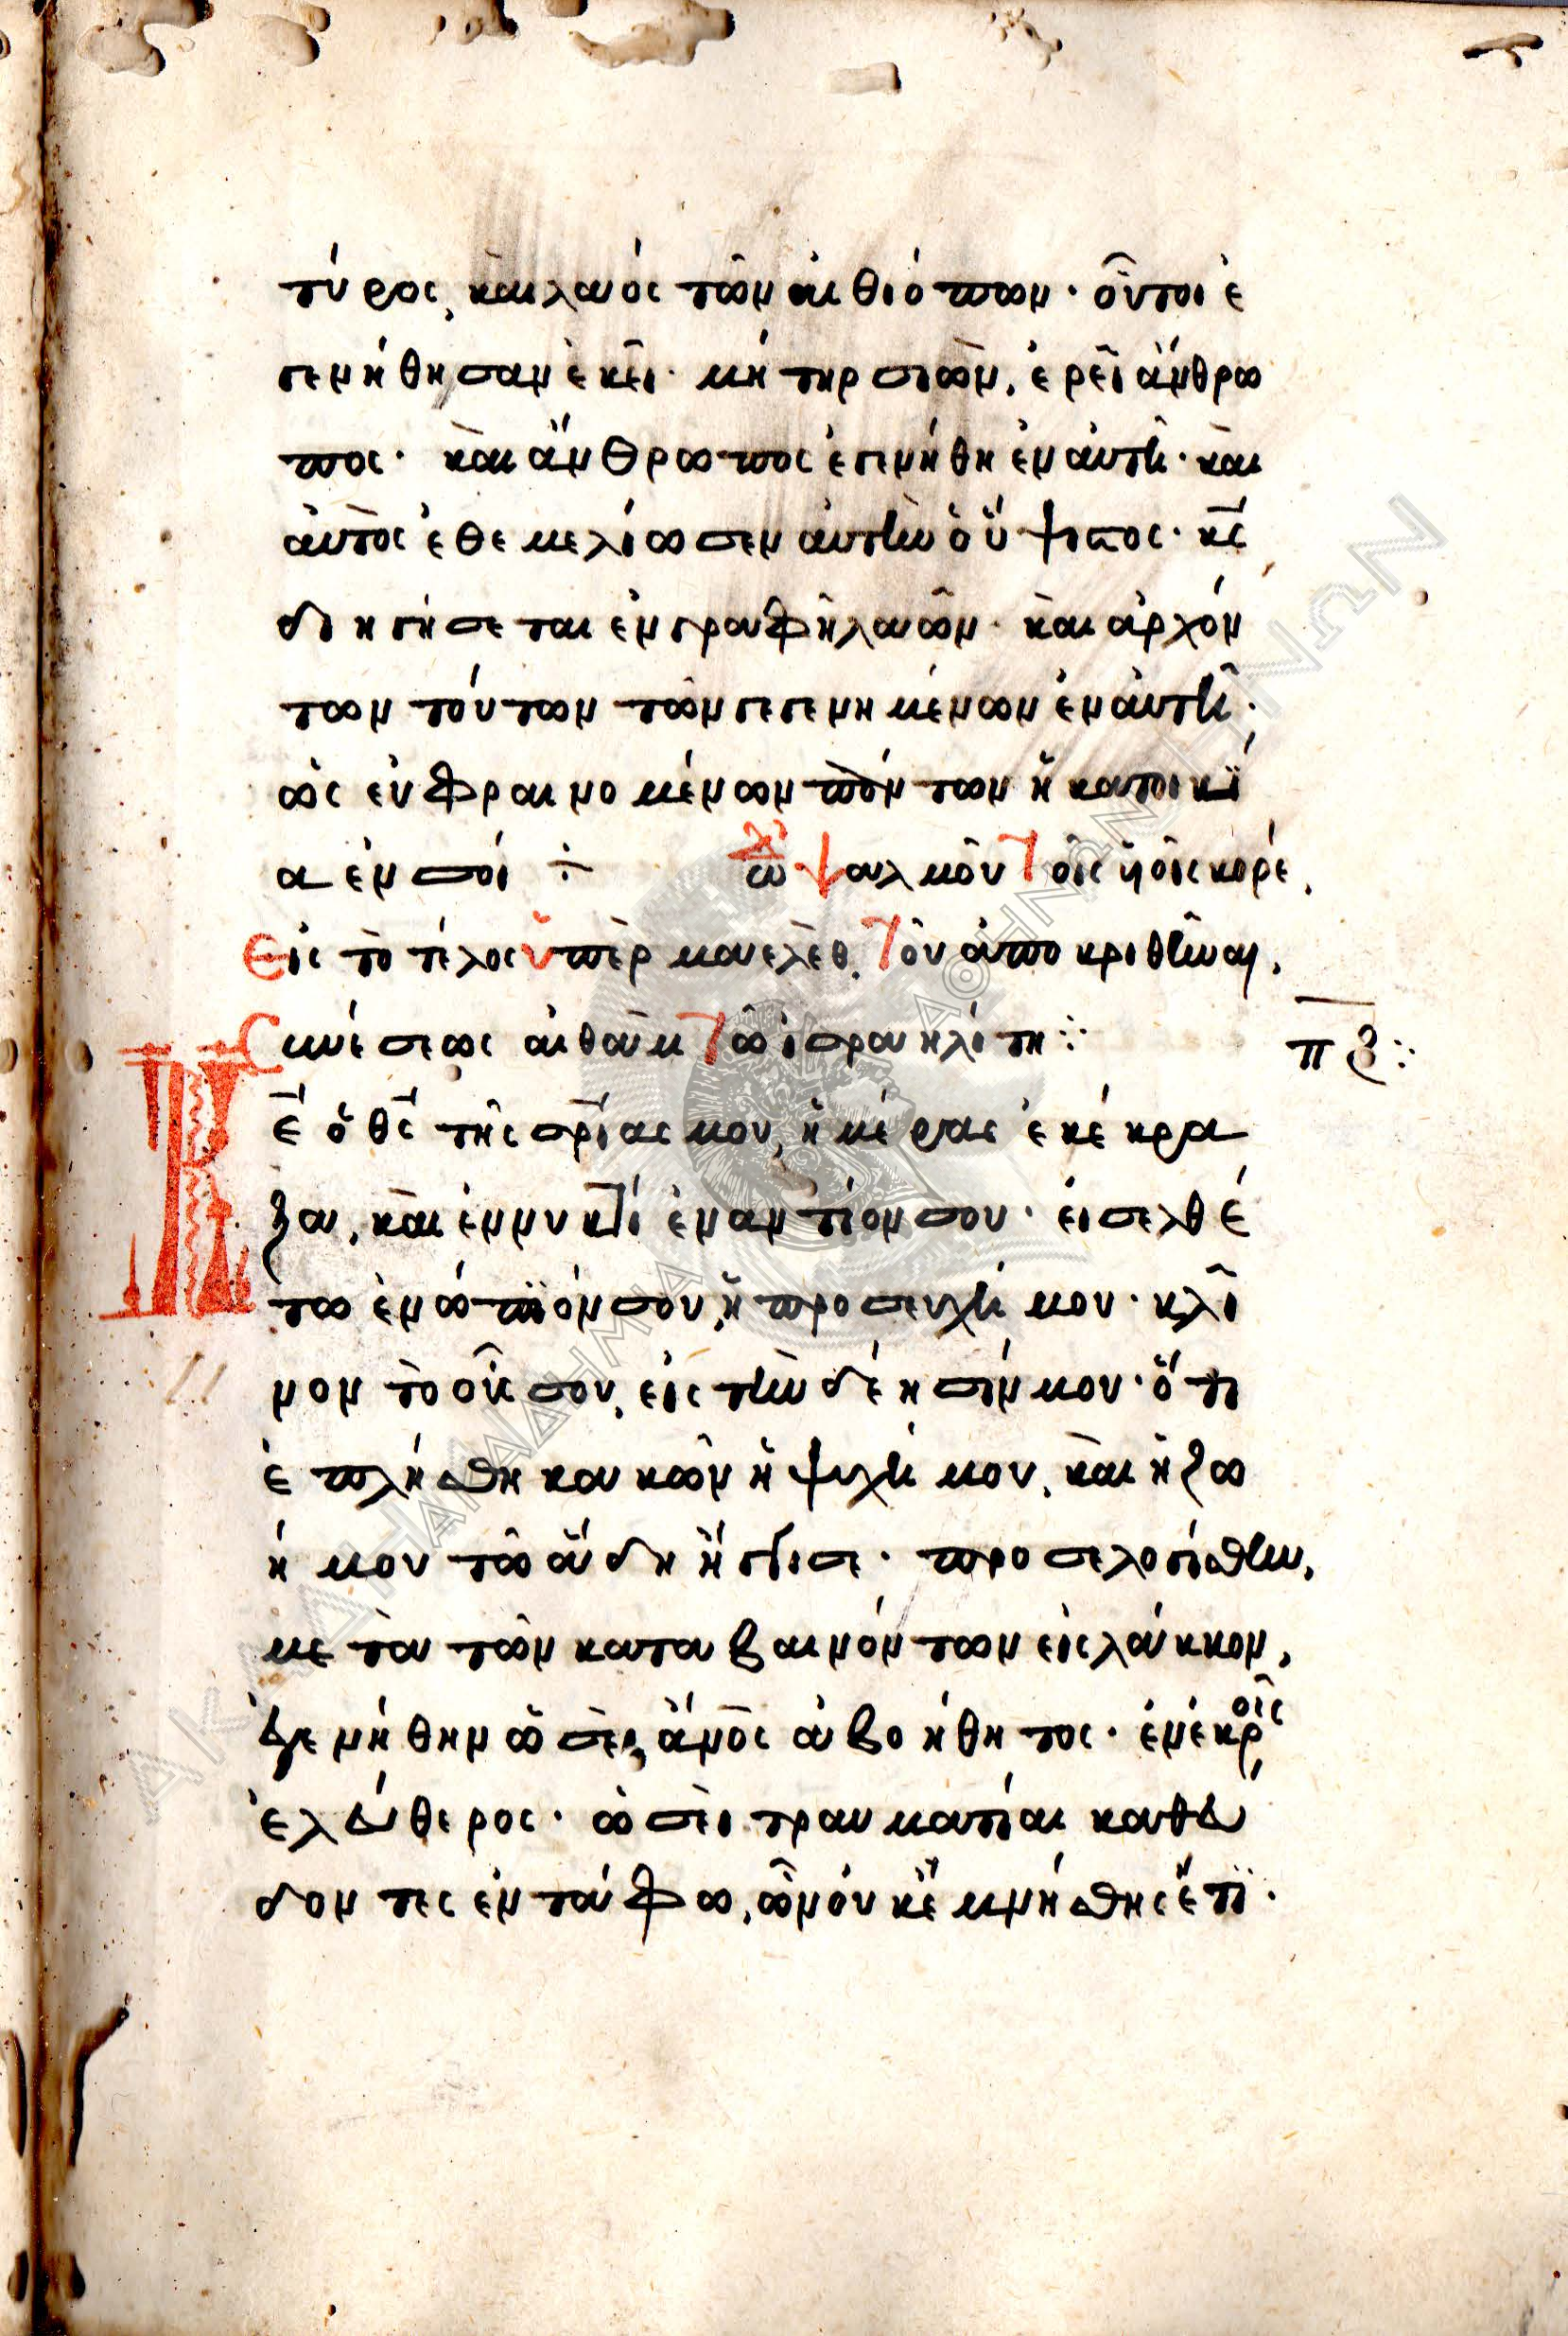 τύρος, και λαός τῶν αἰθιόπων· οὗτοι ἐ
γενήθησαν ἐκεῖ· μήτηρ σιὼν, ἐρεῖ ἄνθρω
πος· καὶ ἄνθρωπος ἐγενήθη ἐν αὐτῆ· καὶ
αὐτὸς ἐθεμελίωσεν αὐτὴν ὁ ὕψιστος· κς
διηγήσεται ἐν γραφῆ λαῶν· καὶ ἀρχόν
των τούτων τῶν γεγενημένων ἐν αὐτῆ·
ὡς εὐφραινομένων πάντων ἡ κατοικί
α ἐν σοί ÷ ὠδ ψαλμοῦ τοῖς ὑοῖς κορέ,
Εἰς τὸ τέλος ὑπὲρ μαελὲθ, τοῦ ἀποκριθῆναι,
συνέσεως αἰθὰμ τῶ ἰσραηλίτη ⁘
πζ ⁘
Κ
ε ὁ θς τῆς σρίας μου, ἡμέρας ἐκέκρα
ξα, καὶ ἐν νυκτί ἐναντίον σου· εἰσελθέ
τω ἐνώπιόν σου, ἡ προσευχή μου· κλῖ
νον τὸ οὖς σου, εἰς τὴν δέησίν μου· ὅτι
ἐπλήσθη κακῶν ἡ ψυχή μου, καὶ ἡ ζω
ή μου τῶ ἅδη ἤγγισε· προσελογίσθην,
μετὰ τῶν καταβαινόντων εἰς λάκκον,
ἐγενήθην ὡσεὶ ἄνος ἀβοήθητος· ἐν νεκροῖς
ἐλεύθερος· ὡσεὶ τραυματίαι καθεύ
δοντες ἐν τάφω, ὧν οὐκ ἐμνήσθης ἔτι·